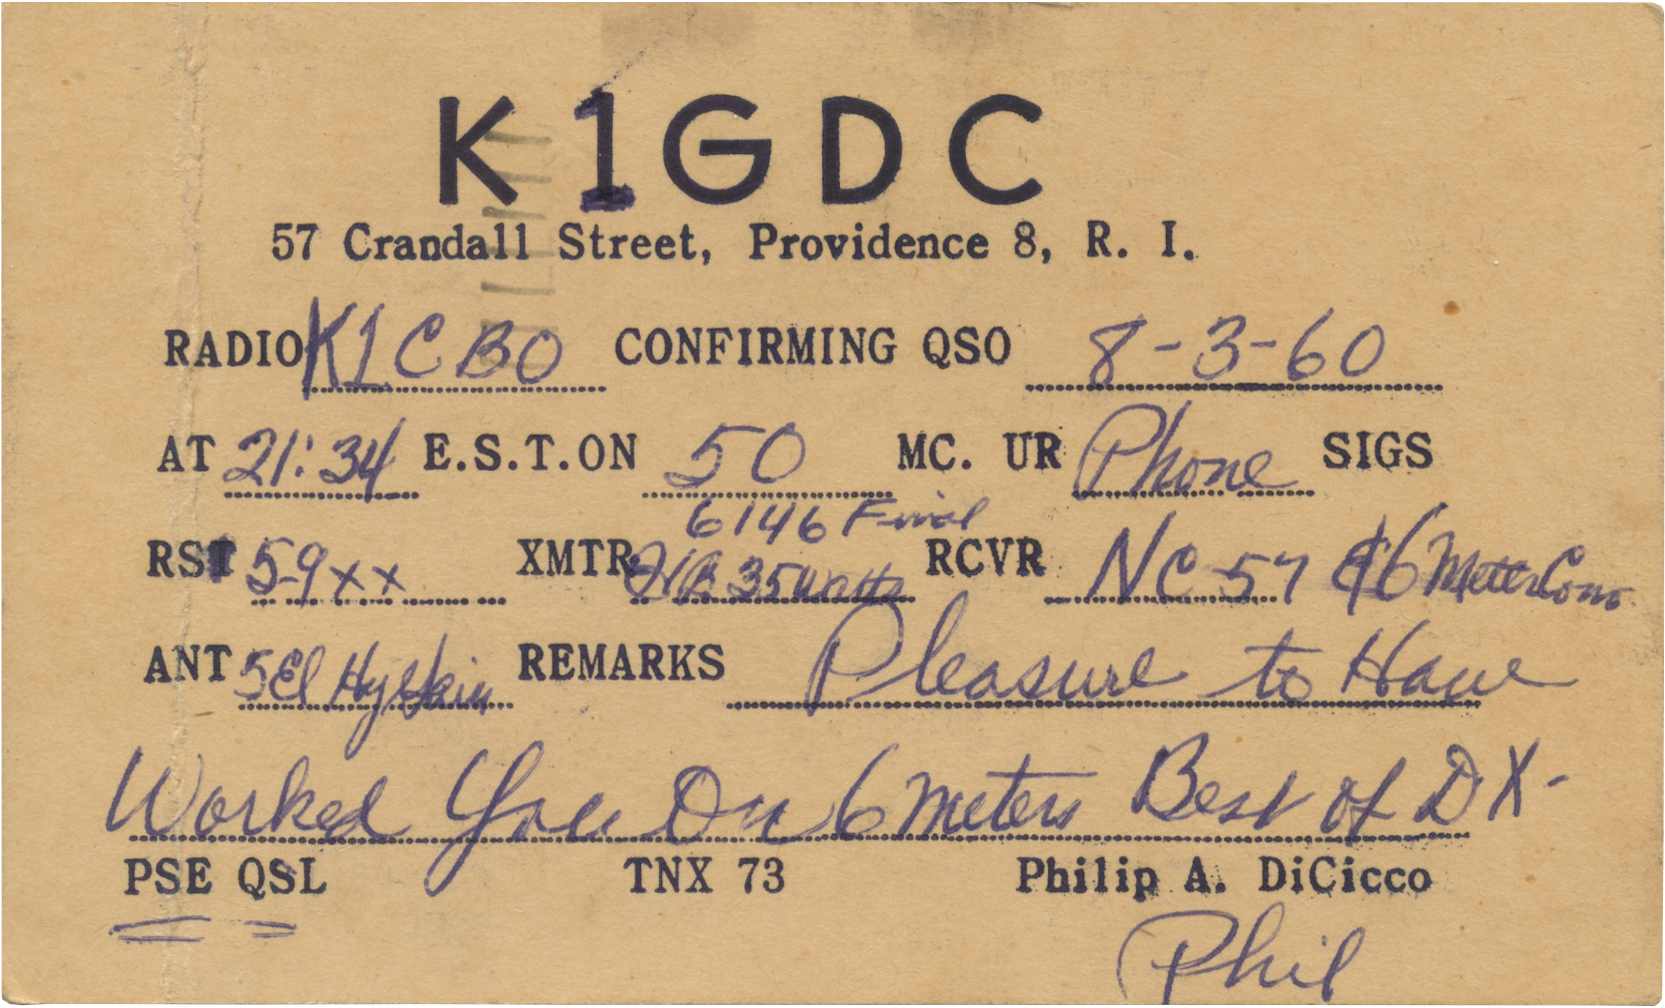 K1GDC
57 Crandall Street, Providence 8, R. I.
RADIO K1CBO CONFIRMING QSO 8-3-60
AT 21:34 E.S.T. ON 50 MC. UR Phone SIGS
6146 Final
RST 5-9xx XMTR 35 Watts RCVR NC 57 & 6 Meter Conv.
ANT 5 El Hy Gain REMARKS Pleasure to Have
Worked You On 6 Meters Best of DX-
PSE QSL TNX 73 Philip A. DiCicco
Phil